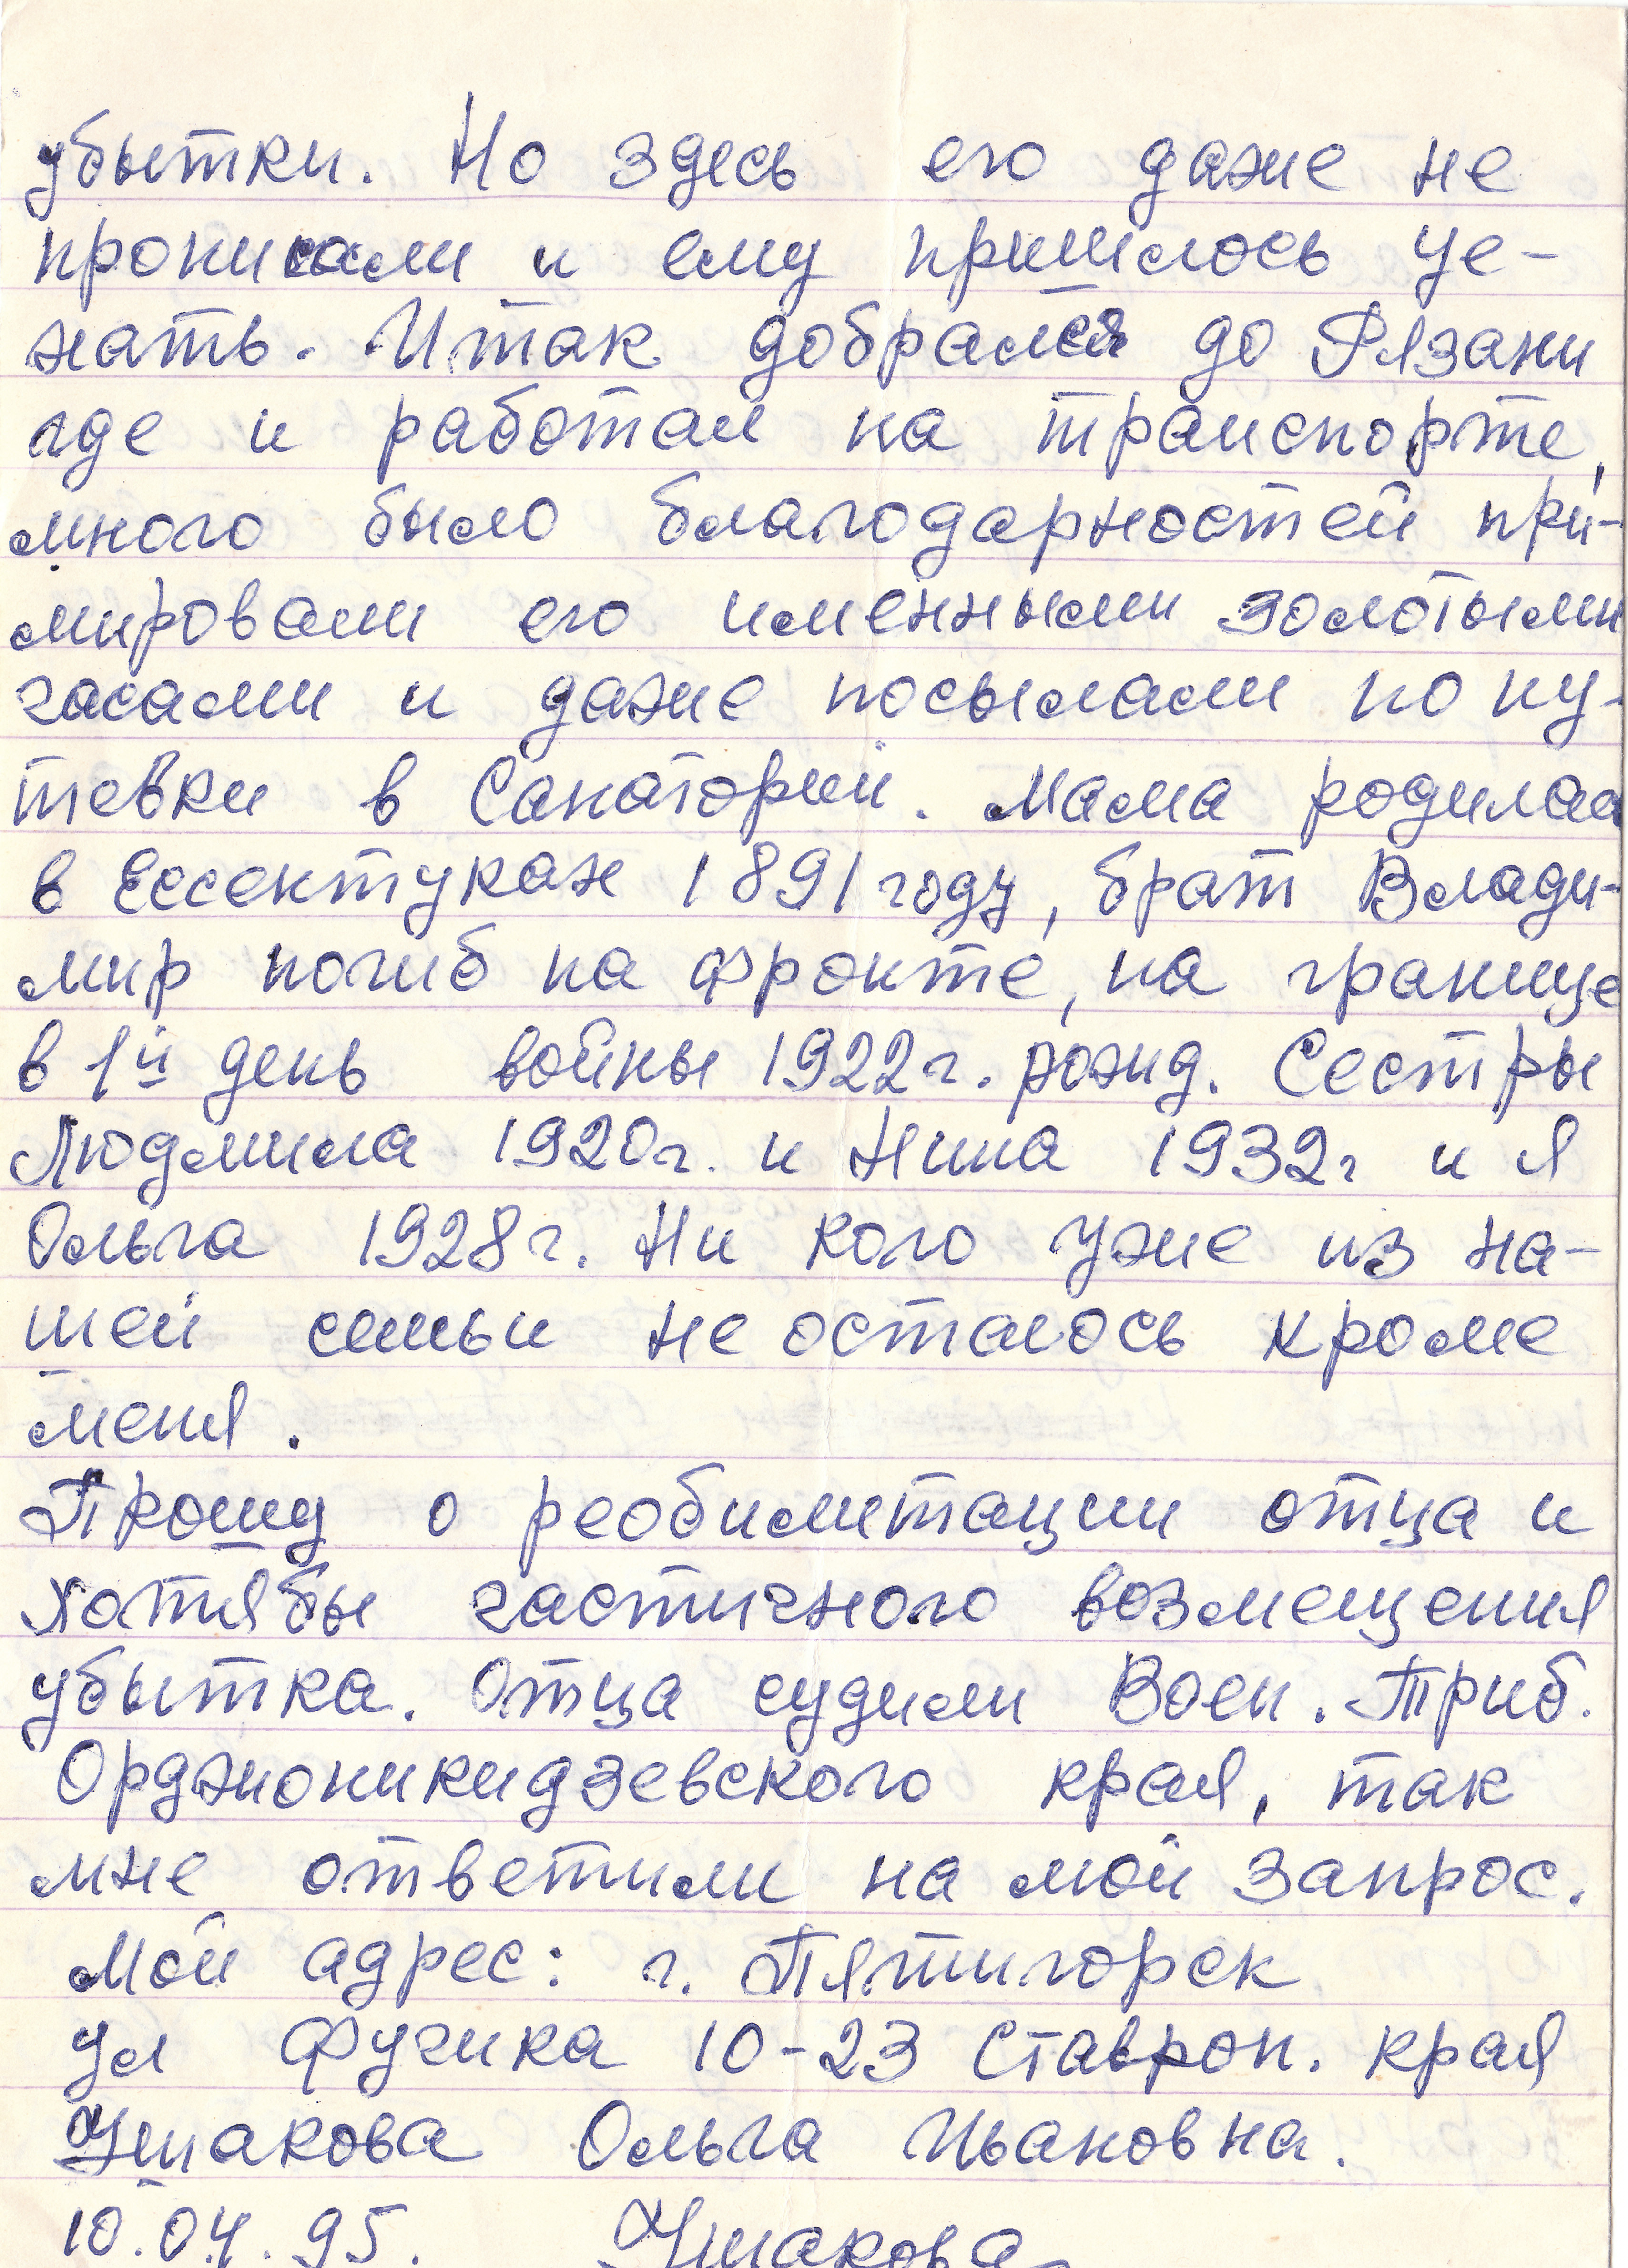 убытки. Но здесь его даже не
прописали и ему пришлось уе-
хать. Итак добрался до Рязани
где и работал на транспорте,
много было благодарностей при-
мировали его именными золотыми
часами и даже посылали по пу-
тевки в Санаторий. Мама родилас
в Ессектуках 1891 году, брат Влади-
мир погиб на фронте, на границе
в 1й день войны 1922г. рожд. Сестры
Людмила 1920г. и Нина 1932г и я
Ольга 1928г. Ни кого уже из на-
шей семьи не осталось кроме
меня.
Прошу о реобилитации отца и
хотябы частичного возмещения
убытка. Отца судили Воен. Триб.
Орджоникидзевского края, так
мне ответили на мой запрос.
Мой адрес: г. Пятигорск
ул Фучика 10-23 Ставроп. края
Ушакова Ольга Ивановна.
10.04.95. Ушакова